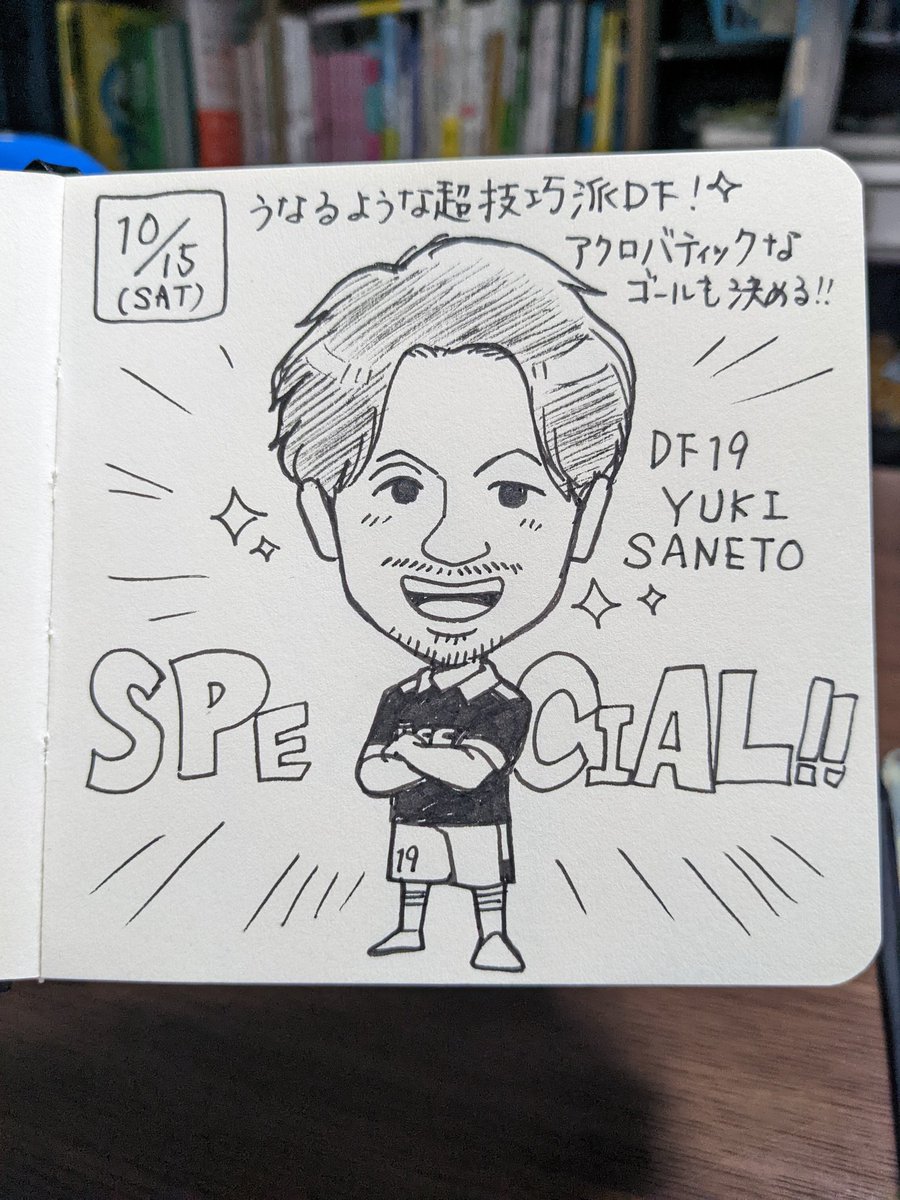 10/15
(SAT)
うなるような超技巧派DF!
アクロバティックな
ゴールも決める!!
DF19
YUKI
SANETO
SPECIAL!!
19